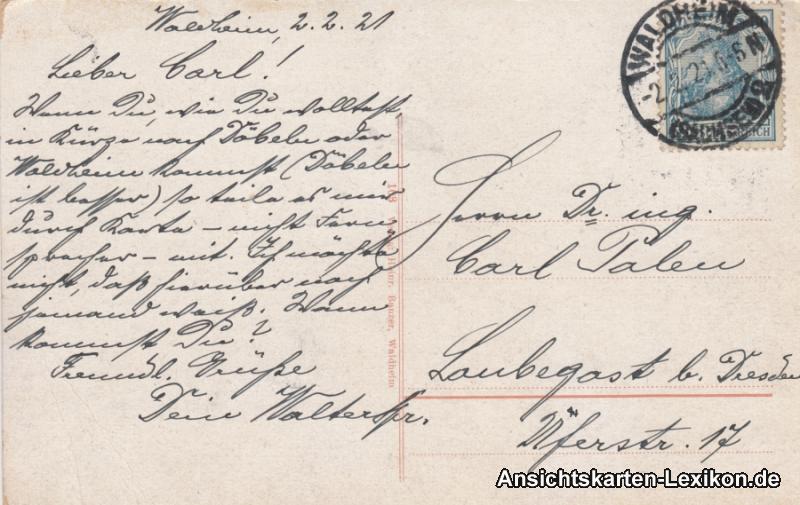 Waldheim, 2.2.21
Lieber Carl!
Wenn Du, wie Du wolltest,
in Kürze nach Döbeln oder
Waldheim kommst (Döbeln
ist besser) so teile es mir
durch Karte – nicht Fern
sprecher – mit. Ich möchte
nicht, daß hierüber noch
jemand weiß. Wann
kommst Du?
Freundl. Grüße
Dein Walter
WALDHEIM
(SACHSEN)
Herrn Dr. ing.
Carl
Laubegast b. Dresden
Uferstr. 17
Bauer, Waldheim
Ansichtskarten-Lexikon.de